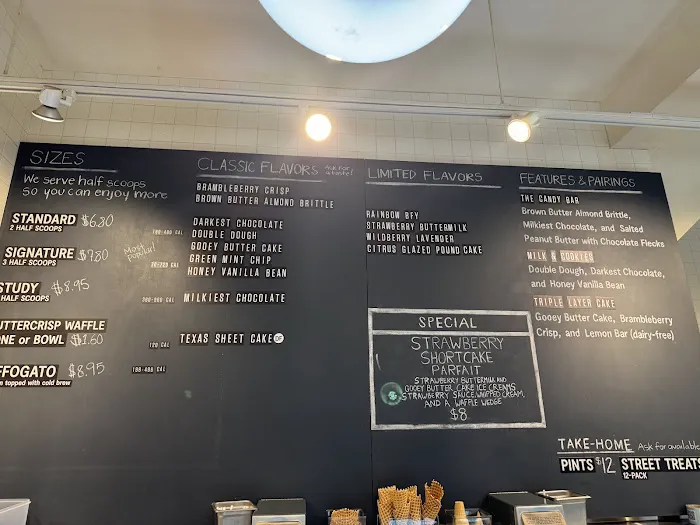 SIZES
We serve half scoops
So you can enjoy more
STANDARD $6.80
2 HALF SCOOPS
SIGNATURE $7.80
3 HALF SCOOPS
Most popular!
STUDY $8.95
HALF SCOOPS
UTTERCRISP WAFFLE
NE or BOWL $1.60
FFOGATO $8.95
n topped with cold brew
CLASSIC FLAVORS Ask for a taste!
BRAMBLEBERRY CRISP
BROWN BUTTER ALMOND BRITTLE
DARKEST CHOCOLATE
DOUBLE DOUGH
GOOEY BUTTER CAKE
GREEN MINT CHIP
HONEY VANILLA BEAN
MILKIEST CHOCOLATE
CAL
TEXAS SHEET CAKE DF
120 CAL
CAL
LIMITED FLAVORS
RAINBOW BFY
STRAWBERRY BUTTERMILK
WILDBERRY LAVENDER
CITRUS GLAZED POUND CAKE
SPECIAL
STRAWBERRY
SHORTCAKE
PARFAIT
STRAWBERRY BUTTERMILK AND
GOOEY BUTTER CAKE ICE CREAMS,
STRAWBERRY SAUCE, WHIPPED CREAM,
AND A WAFFLE WEDGE
$8
FEATURES & PAIRINGS
THE CANDY BAR
Brown Butter Almond Brittle,
Milkiest Chocolate, and Salted
Peanut Butter with Chocolate Flecks
MILK & COOKIES
Double Dough, Darkest Chocolate,
and Honey Vanilla Bean
TRIPLE LAYER CAKE
Gooey Butter Cake, Brambleberry
Crisp, and Lemon Bar (dairy-free)
TAKE-HOME Ask for available
PINTS $12 STREET TREATS
12-PACK